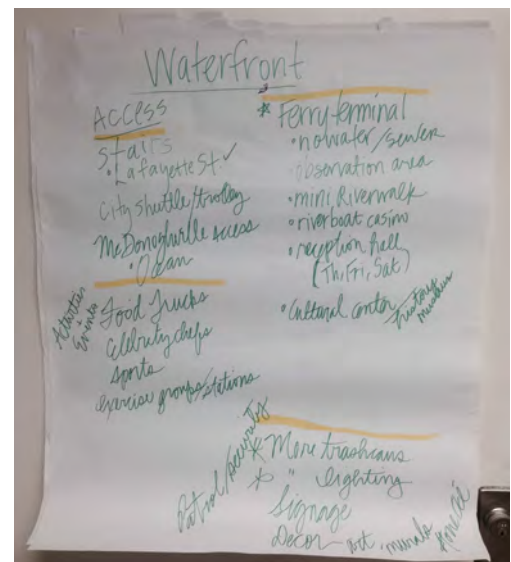 Waterfront
Access
Stairs
• Lafayette St. ✓
City shuttle/trolley
McDonoghville Access
• Ocean
Activities
Events
Food Trucks
Celebrity chefs
Sports
exercise groups/stations
* Ferry terminal
• no water/sewer
observation area
• mini Riverwalk
• riverboat casino
• reception hall
(Th, Fri, Sat)
• Cultural center
history
museum
Patrol/security
* More trashcans
* " lighting
Signage
Decor - art, murals